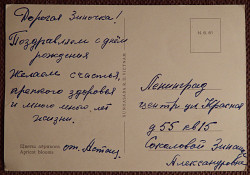 Дорогая Зиночка!
Поздравляем с днём
рождения
Желаем счастья,
крепкого здоровья
и много много лет
жизни.
от
Ленинград
центр ул. Красная
д 55 кв 15
Соколовой Зинаиде
Александровне